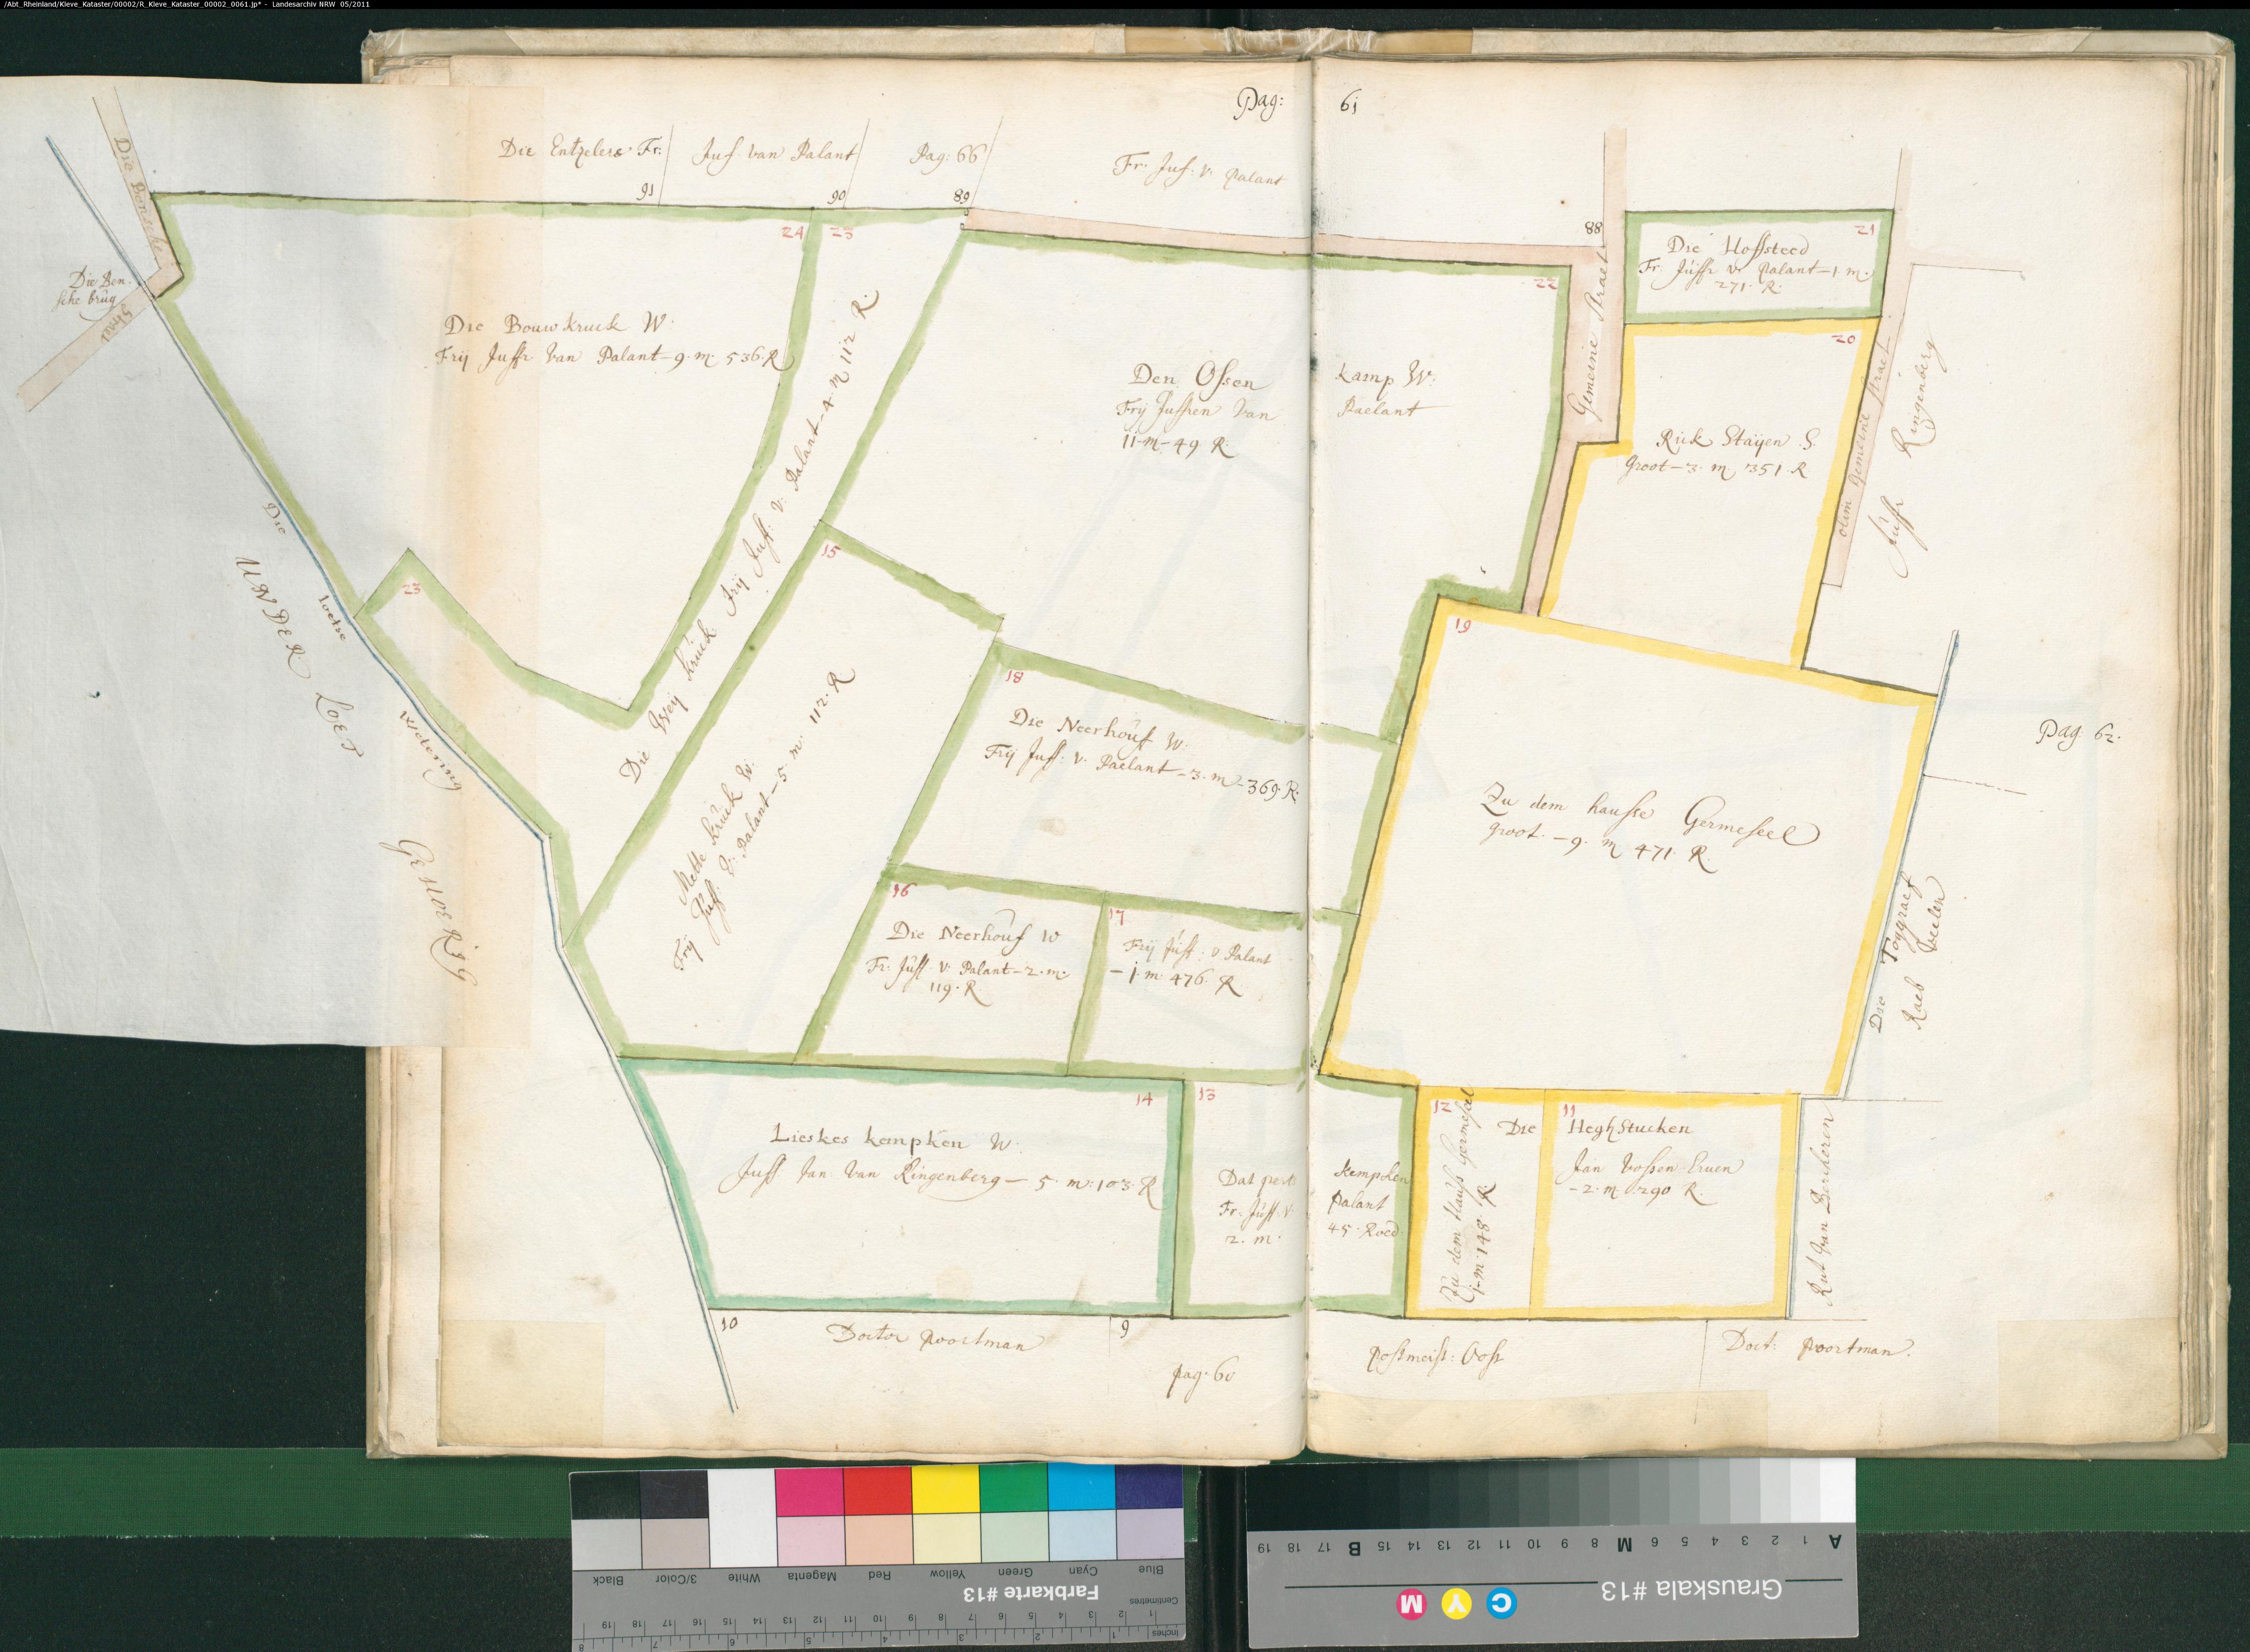 /Abt_Rheinland/Kleve_Kataster/00002/R_Kleve_Kataster_00002_0061.jp* - Landesarchiv NRW 05/2011
Pag: 61
Die Entzelers Fr:
Juf. van Palant
Pag: 66
Fr: Juf: v: Palant
91
90
89
88
Die Bensche
Straet
Die Ben
sche brug
24
23
Die Bouwkruck W:
Frij Juffr van Palant - 9. m. 536. R
Die Weij kruck Frij Juff: v: Palant - 4. m 112 R.
22
Den Ossen kamp W:
Frij Juffren van Paelant
11-m-49 R.
Gemeine Straet
21
Die Hoffsteed
Fr. Juffr v. Palant - 1 m.
271. R.
20
Rick Staijen S.
groot - 3. m. 351. R
olim gemeine straet
Juffr Ringenberg
23
Die loetse Wetering
UNDER LOET
15
Mette kruck W:
Frij Juff. v: Palant - 5. m: 112. R
18
Die Neerhouf W.
Frij Juff: v. Paelant - 3. m - 369. R:
19
Zu dem hausse Germeseel
groot. - 9. m 471. R.
Pag. 62.
16
Die Neerhouf W
Fr. Juff. v. Palant - 2. m.
119. R
17
Frij Juff: v Palant
- 1. m. 476. R
Die Toggraef
Raeb Veelen
14
Lieskes kempken W.
Juff Van Van Ringenberg - 5. m: 103. R
13
Dat kempken
Fr: Juff. v Palant
2. m. 45. Roed
12
Zu dem Hauss Germesel
1-m. 148. R.
11
Die Hegh Stucken
Jan Vossen Eruen
- 2. m. 290 R.
Rut van Berckeren
10
Doctor Poortman
9
pag. 60
Postmeist: Voss
Doct: Poortman.
Black
3/Color
White
Magenta
Red
Yellow
Green
Cyan
Blue
Farbkarte #13
Centimetres
Inches
Grauskala #13
A 1 2 3 4 5 6 M 8 9 10 11 12 13 14 15 B 17 18 19
C Y M